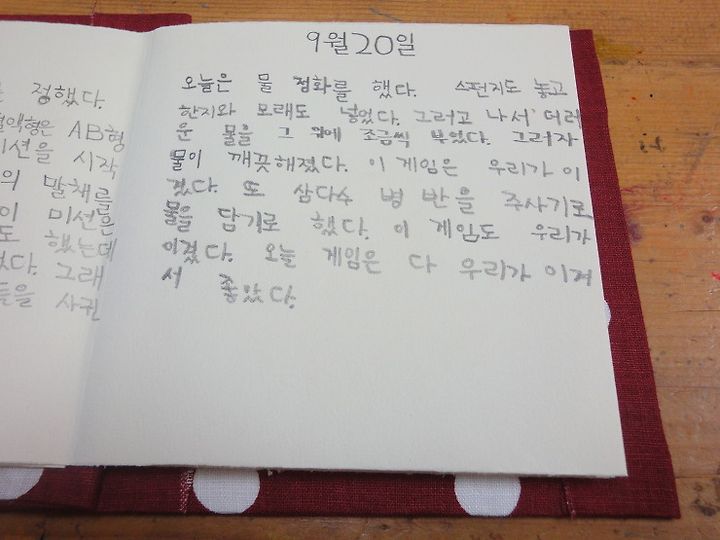 를 정했다.
혈액형은 AB형
미션을 시작
의 말채를
이 미션은
도 했는데
었다. 그래
들을 사귄
9월 20일
오늘은 물 정화를 했다. 스펀지도 놓고
한지와 모래도 넣었다. 그러고 나서 더러
운 물을 그 위에 조금씩 부었다. 그러자
물이 깨끗해졌다. 이 게임은 우리가 이
겼다. 또 삼다수 병 반을 주사기로
물을 담기로 했다. 이 게임도 우리가
이겼다. 오늘 게임은 다 우리가 이겨
서 좋았다.